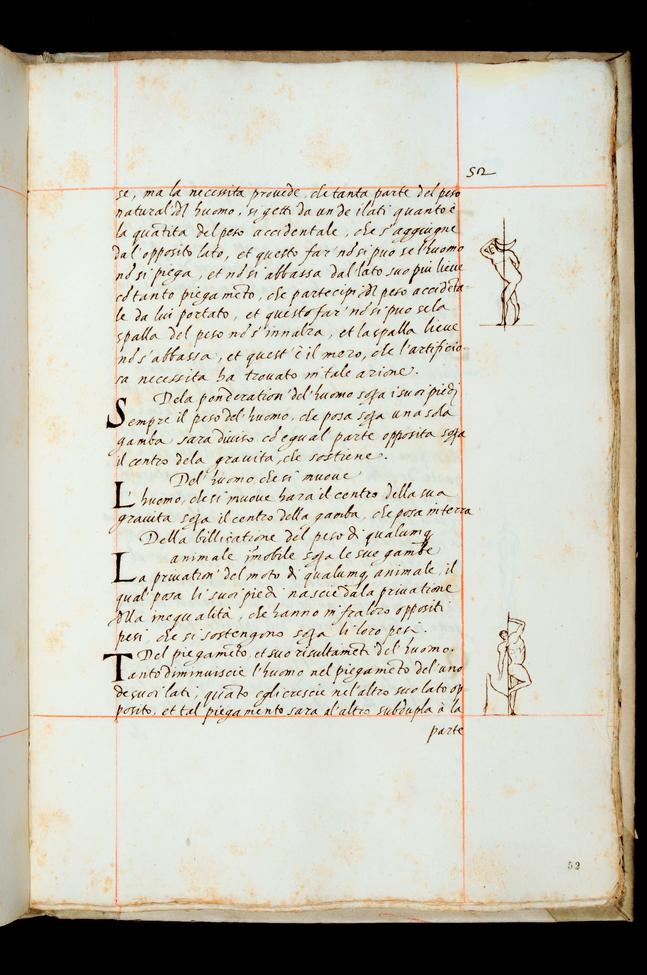 52
se, ma la necessita provede, che tanta parte del peso
natural' dl' huomo, si getti da un de i lati quanto è
la quātita del peso accidentale, che s'aggiugne
dal opposito lato, et questo far' nō si puo se l'huomo
nō si piega, et nō si abbassa dal lato suo più lieve
cō tanto piegamēto, che partecipi dl peso accidēta-
le da lui portato, et questo far' nō si puo se la
spalla del peso nō s'innalza, et la spalla lieve
nō s'abbassa, et quest' è il mezo, che l'artificio-
sa necessita ha trovato in tale azione.
Dela ponderation' del' huomo sopa i suoi piedi
Sempre il peso del' huomo, che posa sopa una sola
gamba sara diviso cō egual parte opposita sopa
il centro dela gravita, che sostiene.
Del' huomo, che si muove
L' huomo, che si muove hara il centro della sua
gravita sopa il centro della gamba, che posa in terra
Della billicatione del peso di qualunq
animale īmobile sopa le sue gambe
La privation' del moto di qualunq animale, il
qual' posa li suoi piedi nascie dala privatione
dlla inequalità, che hanno in fra loro oppositi
pesi, che si sostengono sopa li loro pesi.
Del piegamēto, et suo risultamēti del' huomo.
Tanto diminuiscie l'huomo nel piegamēto del' uno
de suoi lati, quāto egli crescie nel' altro suo lato op-
posito, et tal piegamento sara al' altro subdupla à la
parte
52